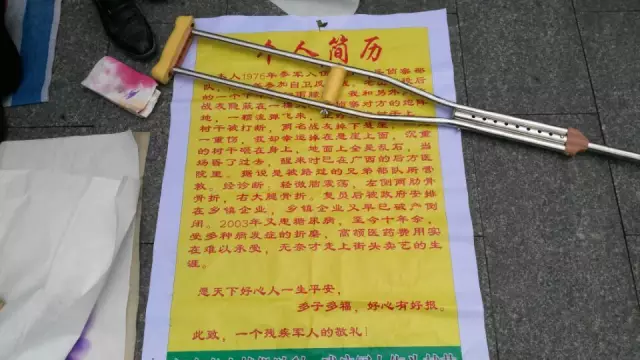 个人简历
本人1976年参军入伍 侦察部
队 年参加自卫反 最后
的一个 我和另外
战友隐蔽在一棵 侦察对方的炮阵
地，一颗流弹飞来，
树干被打断，两名战友掉下悬崖，一
一重伤，我却幸运掉在悬崖上面，沉重
的树干砸在身上，地面上全是乱石，当
场昏了过去，醒来时已在广西的后方医
院里。据说是被路过的兄弟部队所营
救。经诊断：轻微脑震荡，左侧两肋骨
骨折，右大腿骨折。复员后被政府安排
在乡镇企业，乡镇企业又早已破产倒
闭。2003年又患糖尿病，至今十年余，
受多种病发症的折磨，高额医药费用实
在难以承受，无奈才走上街头卖艺的生
涯。
愿天下好心人一生平安，
多子多福，好心有好报。
此致，一个残疾军人的敬礼！